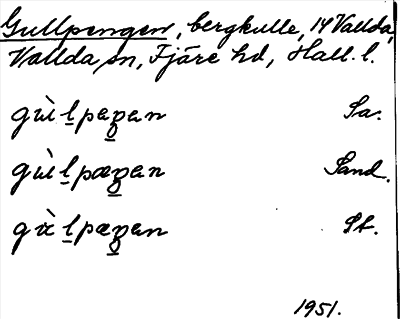 Gullpengen, bergkulle, 14 Vallda,
Vallda sn, Fjäre hd, Hall. l.
gùlpeŋen Sa.
gùlpæŋen Sand.
St.
1951.